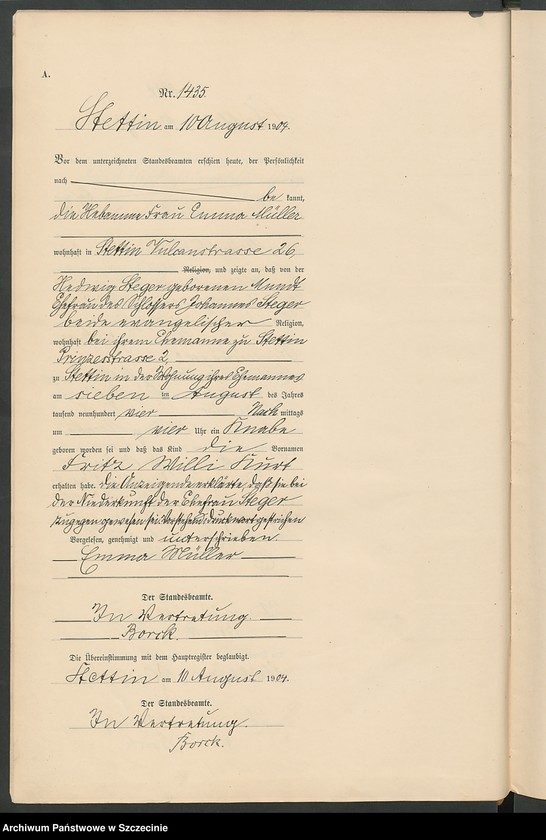 A.
Nr. 1435.
Stettin am 10 August 1904.
Vor dem unterzeichneten Standesbeamten erschien heute, der Persönlichkeit
nach
be kannt,
die Hebamme Frau Emma Müller
wohnhaft in Stettin Vulcanstrasse 26,
Religion, und zeigte an, daß von der
Hedwig Steger geborenen Mundt
Ehefrau des Schlossers Johannes Steger
beide evangelischer Religion,
wohnhaft bei ihrem Ehemanne zu Stettin
Prinzesstrasse 2
zu Stettin in der Wohnung ihres Ehemannes
am sieben ten August des Jahres
tausend neunhundert vier Nach mittags
um vier Uhr ein Knabe
geboren worden sei und daß das Kind die Vornamen
Fritz Willi Kurt
erhalten habe. die Anzeigende erklärte, daß sie bei
der Niederkunft der Ehefrau Steger
zugegen gewesen sei. Vorstehend 1 Druckwort gestrichen
Vorgelesen, genehmigt und unterschrieben
Emma Müller
Der Standesbeamte.
In Vertretung
Borck.
Die Übereinstimmung mit dem Hauptregister beglaubigt.
Stettin am 10 August 1904.
Der Standesbeamte.
In Vertretung.
Borck.
Archiwum Państwowe w Szczecinie